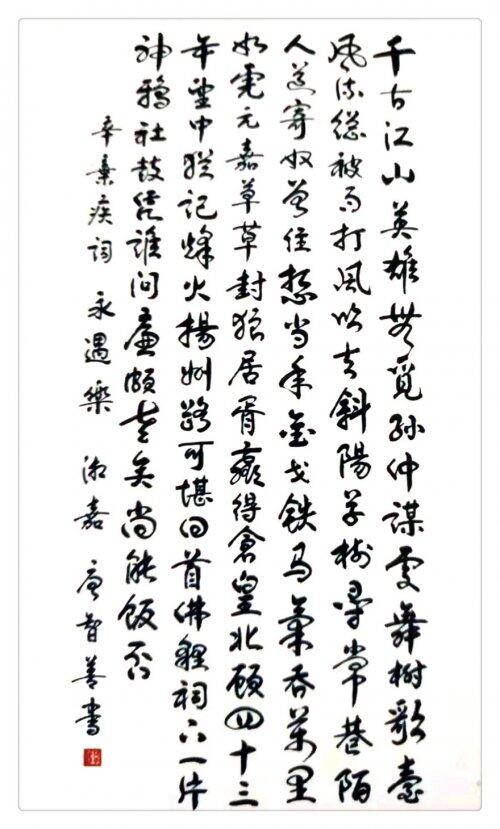 千古江山英雄無覓孫仲謀處舞榭歌臺
風流總被雨打風吹去斜陽草樹尋常巷陌
人道寄奴曾住想當年金戈鐵馬氣吞萬里
如虎元嘉草草封狼居胥贏得倉皇北顧四十三
年望中猶記烽火揚州路可堪回首佛貍祠下一片
神鴉社鼓憑誰問廉頗老矣尚能飯否
辛棄疾詞 永遇樂 嘉 智善書